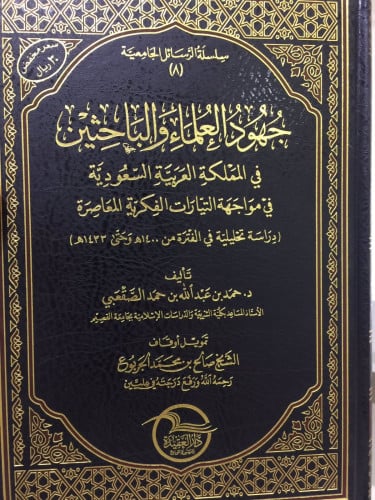 سلسلة الرسائل الجامعية
(٨)
جهود العلماء والباحثين
في المملكة العربية السعودية
في مواجهة التيارات الفكرية المعاصرة
(دراسة تحليلية في الفترة من ١٤٠٠هـ وحتى ١٤٣٣هـ)
تأليف
د. حمد بن عبدالله بن حمد الصقعبي
الأستاذ المساعد بكلية الشريعة والدراسات الإسلامية بجامعة القصيم
تمويل أوقاف
الشيخ صالح بن محمد الجربوع
رحمه الله ورفع درجته في عليين
دار العقيدة